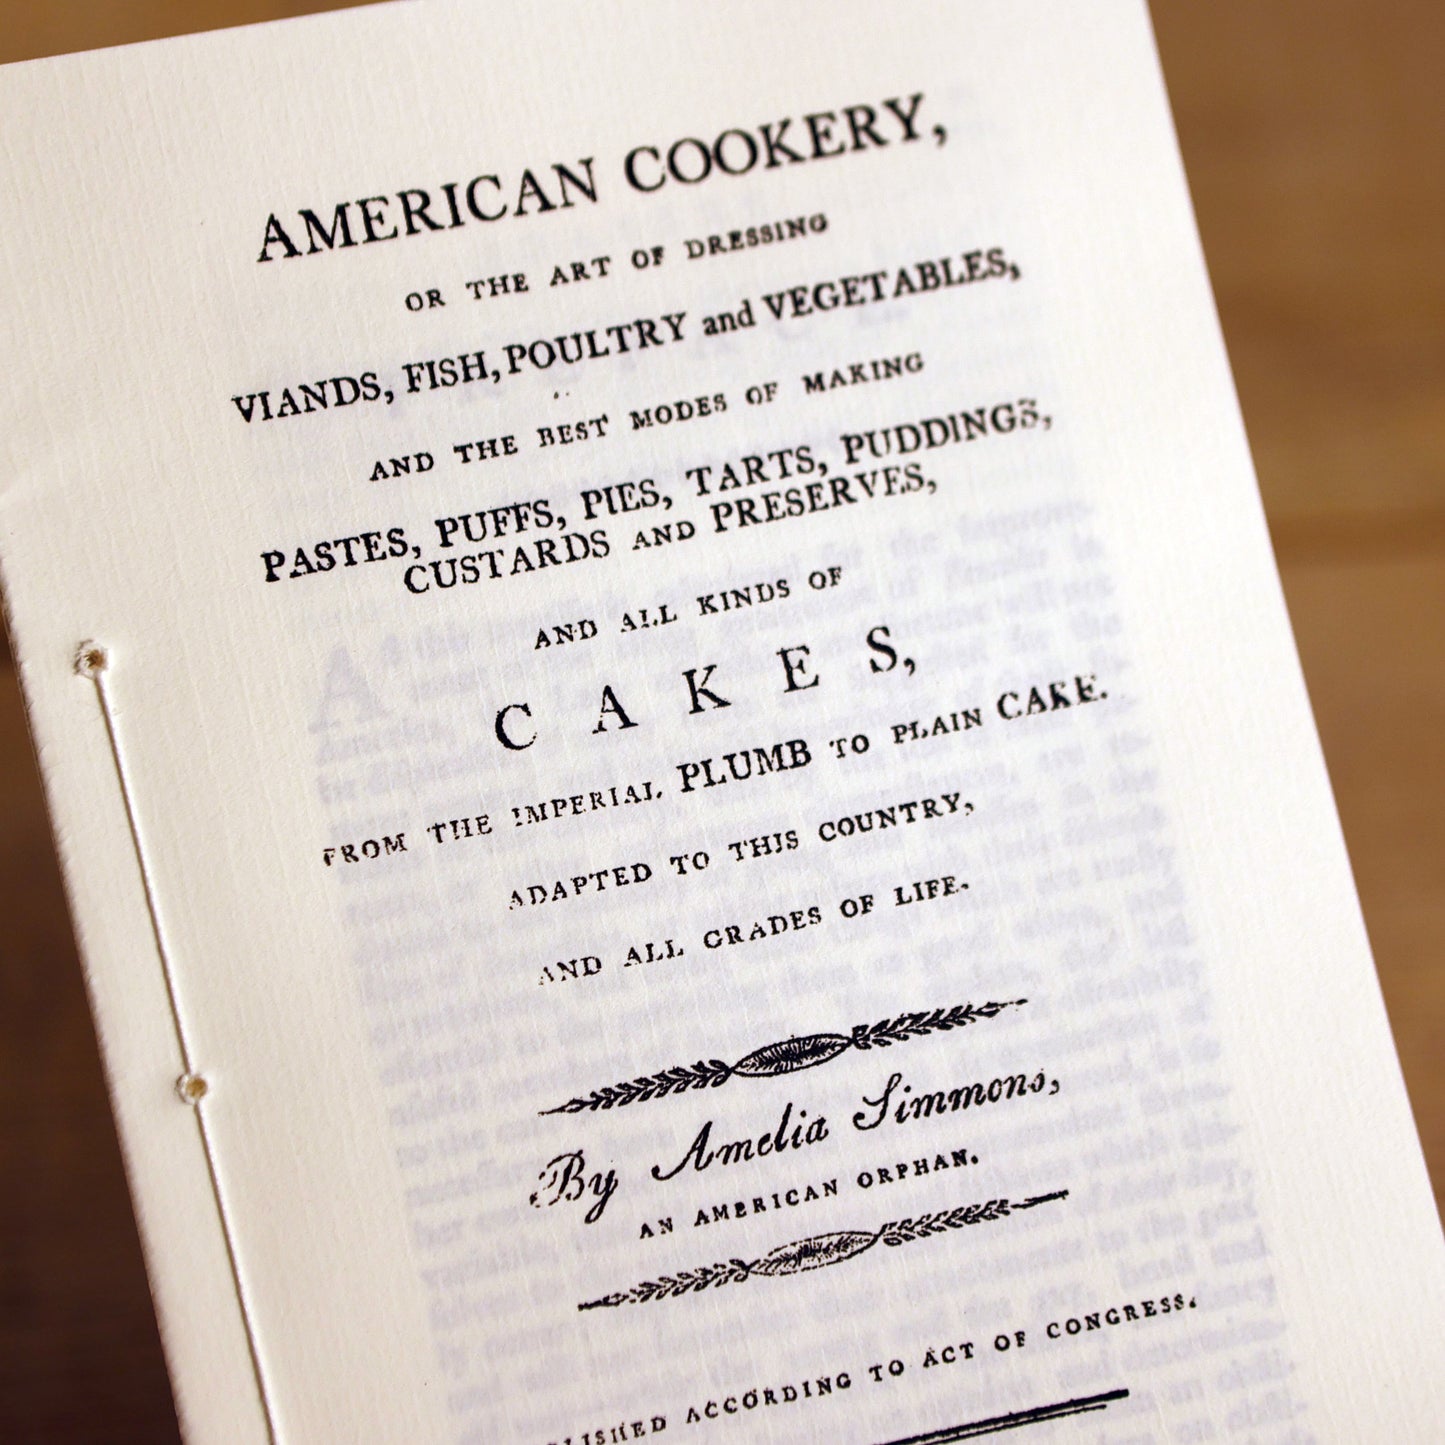 AMERICAN COOKERY,
OR THE ART OF DRESSING
VIANDS, FISH, POULTRY and VEGETABLES,
AND THE BEST MODES OF MAKING
PASTES, PUFFS, PIES, TARTS, PUDDINGS,
CUSTARDS AND PRESERVES,
AND ALL KINDS OF
CAKES,
FROM THE IMPERIAL PLUMB TO PLAIN CAKE.
ADAPTED TO THIS COUNTRY,
AND ALL GRADES OF LIFE.
By Amelia Simmons,
AN AMERICAN ORPHAN.
LISHED ACCORDING TO ACT OF CONGRESS.